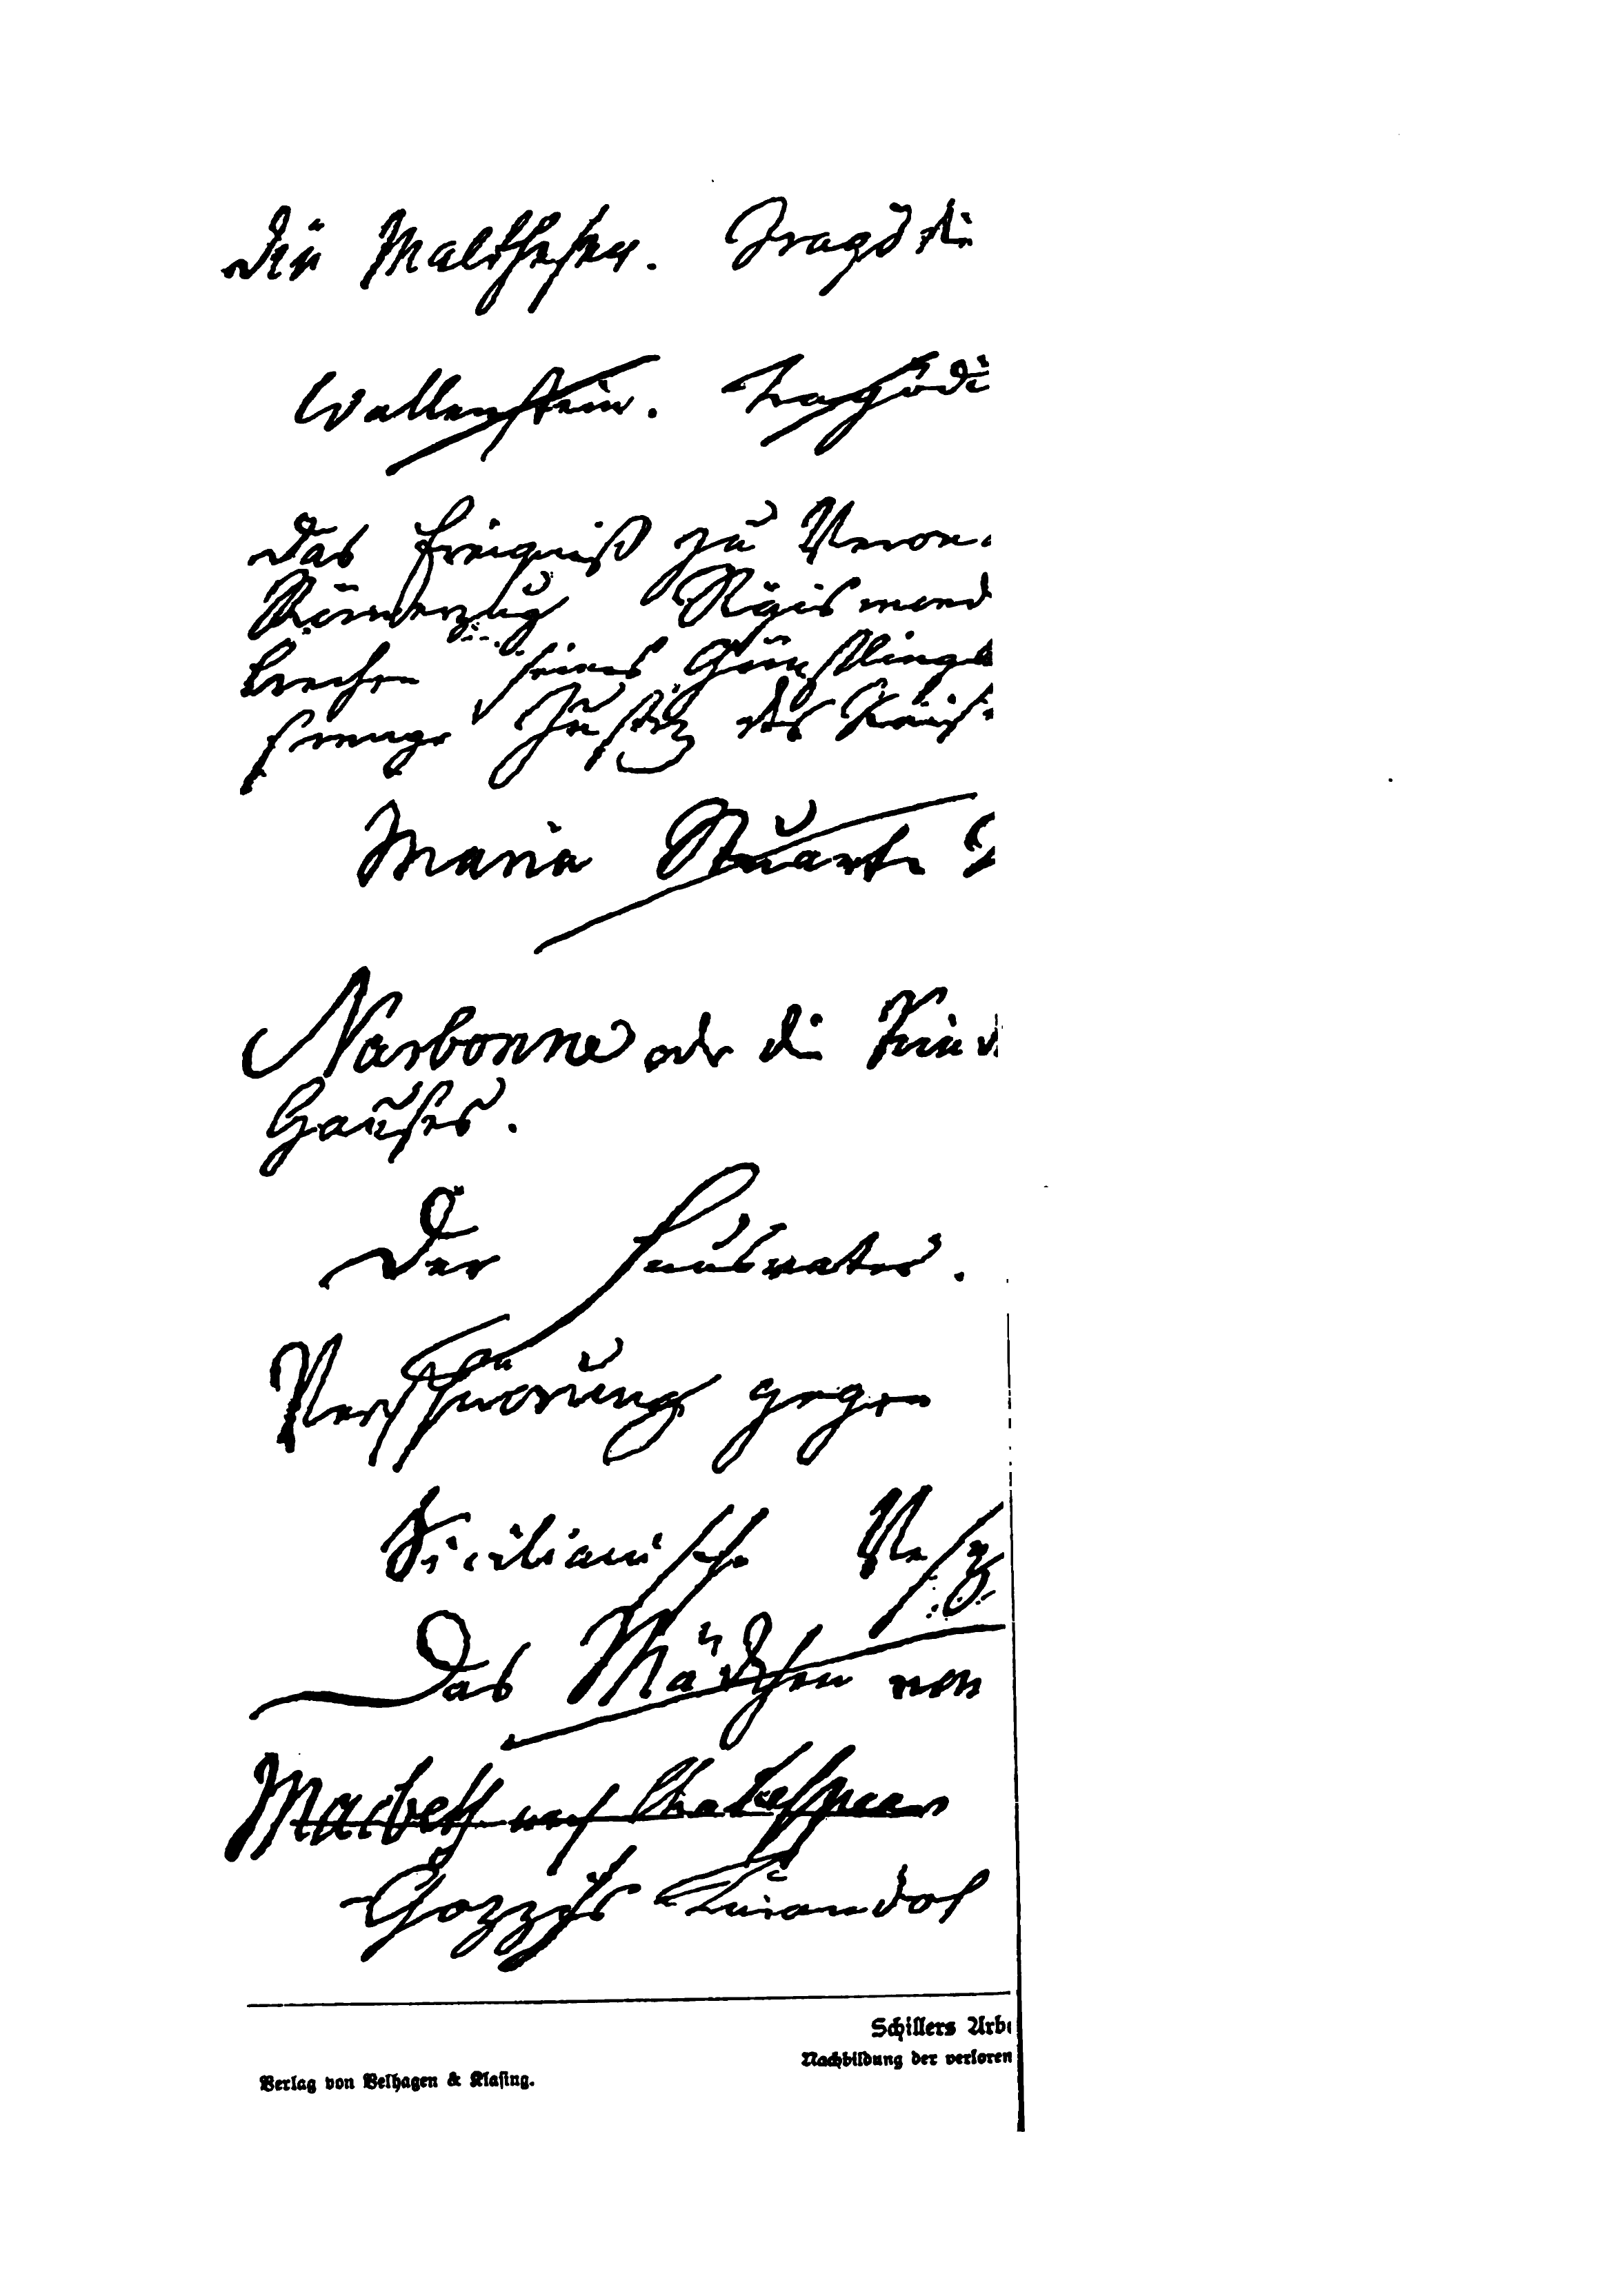 Die Maltheser. Tragödi
Wallenstein. Tragödi
Das Ereigniß zu Veron
Römerzug Sigismund
brechen seines Günstlings
strenge Justiz des Kais
Maria Stuart. T
Narbonne oder die Kind
Hauses.
Der Hausvater.
Verschwörung gegen
Sicilianische Vesp
Das Mädchen von
Macbeth nach Shakespear
Gozzis Turandot
Schillers Arb
Nachbildung der verloren
Verlag von Velhagen & Klasing.